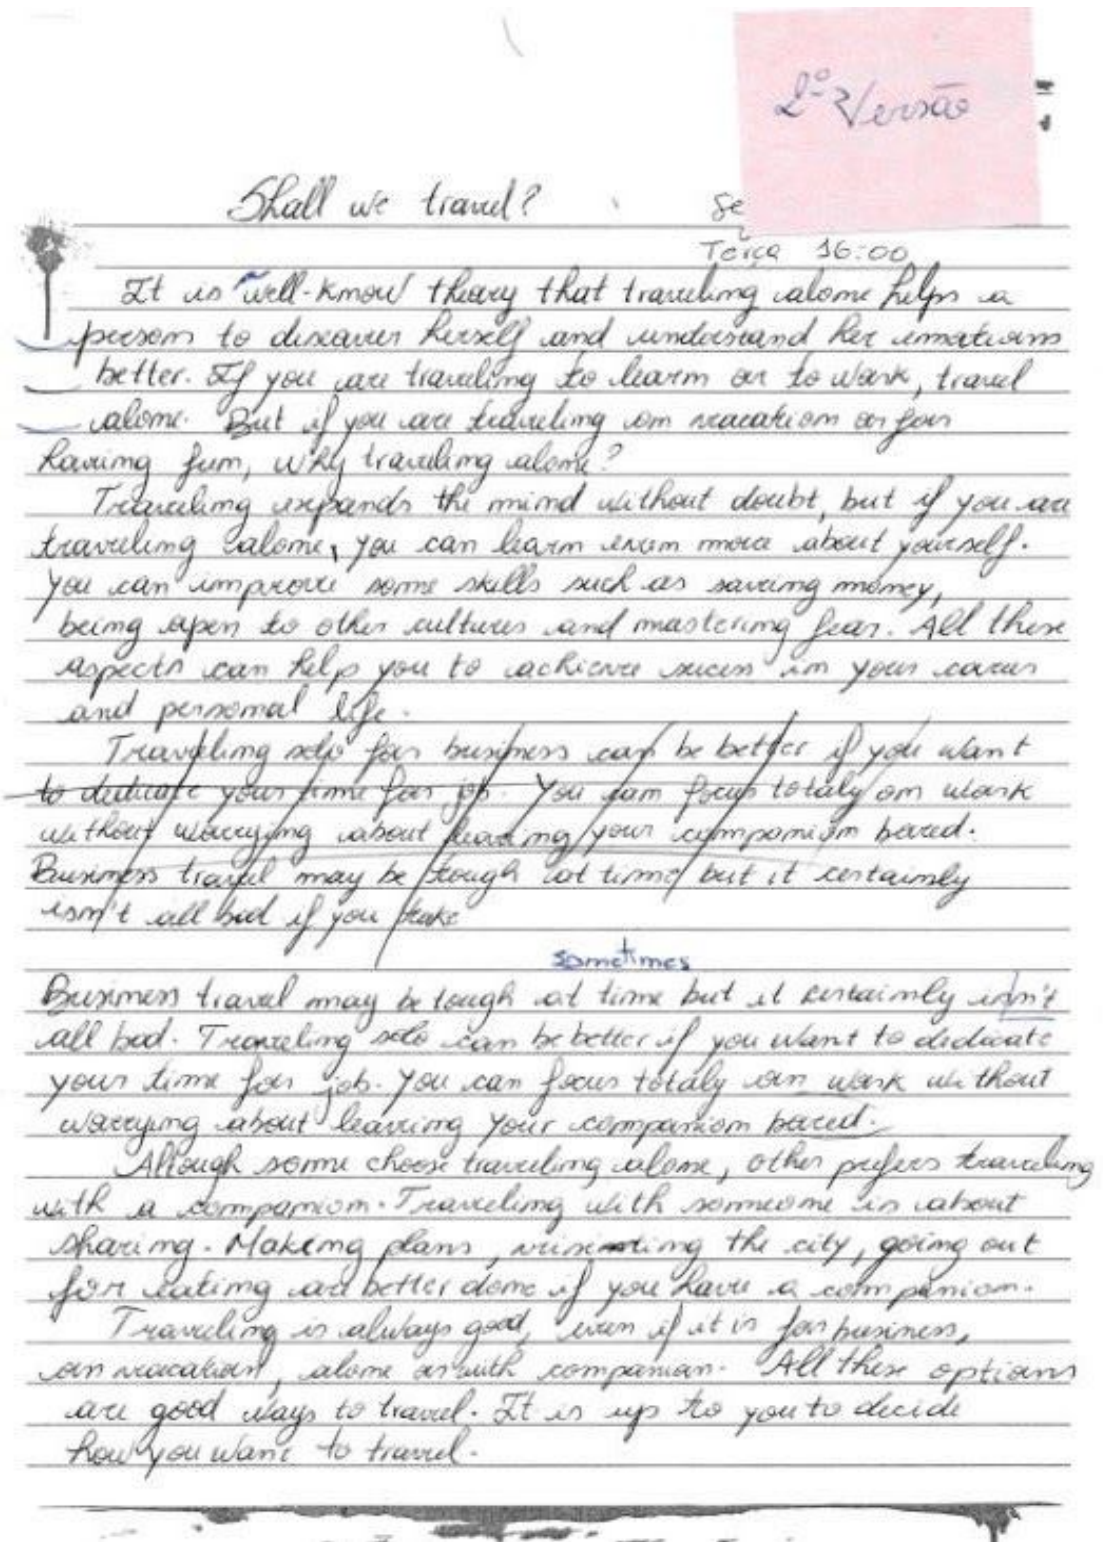 2º Versão
Shall we travel? Se
Terça 16:00
It is well-know theory that traveling alone helps a
person to discover herself and understand her emotions
better. If you are traveling to learn or to work, travel
alone. But if you are traveling on vacation or for
having fun, why traveling alone?
Traveling expands the mind without doubt, but if you are
traveling alone, you can learn even more about yourself.
You can improve some skills such as saving money,
being open to other cultures and mastering fear. All these
aspects can help you to achieve sucess in your career
and personal life.
Traveling solo for business can be better if you want
to dedicate your time for job. You can focus totaly on work
without worrying about leaving your companion bored.
Business travel may be tough at time but it certainly
isn't all bad if you take
sometimes
Business travel may be tough at time but it certainly isn't
all bad. Traveling solo can be better if you want to dedicate
your time for job. You can focus totaly on work without
worrying about leaving your companion bored.
Allough some choose traveling alone, other prefers traveling
with a companion. Traveling with someone is about
sharing. Making plans, visiting the city, going out
for eating are better done if you have a companion.
Traveling is always good, even if it is for business,
on vacation, alone or with companion. All these options
are good ways to travel. It is up to you to decide
how you want to travel.